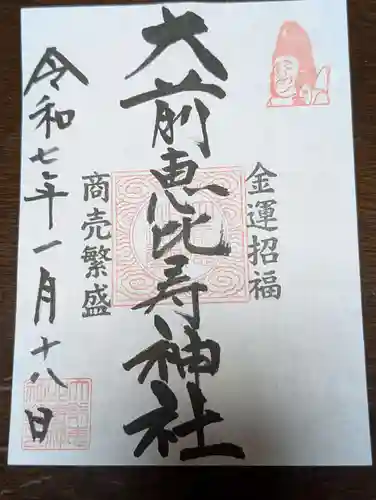 金運招福
大前恵比寿神社
商売繁盛
令和七年一月十八日